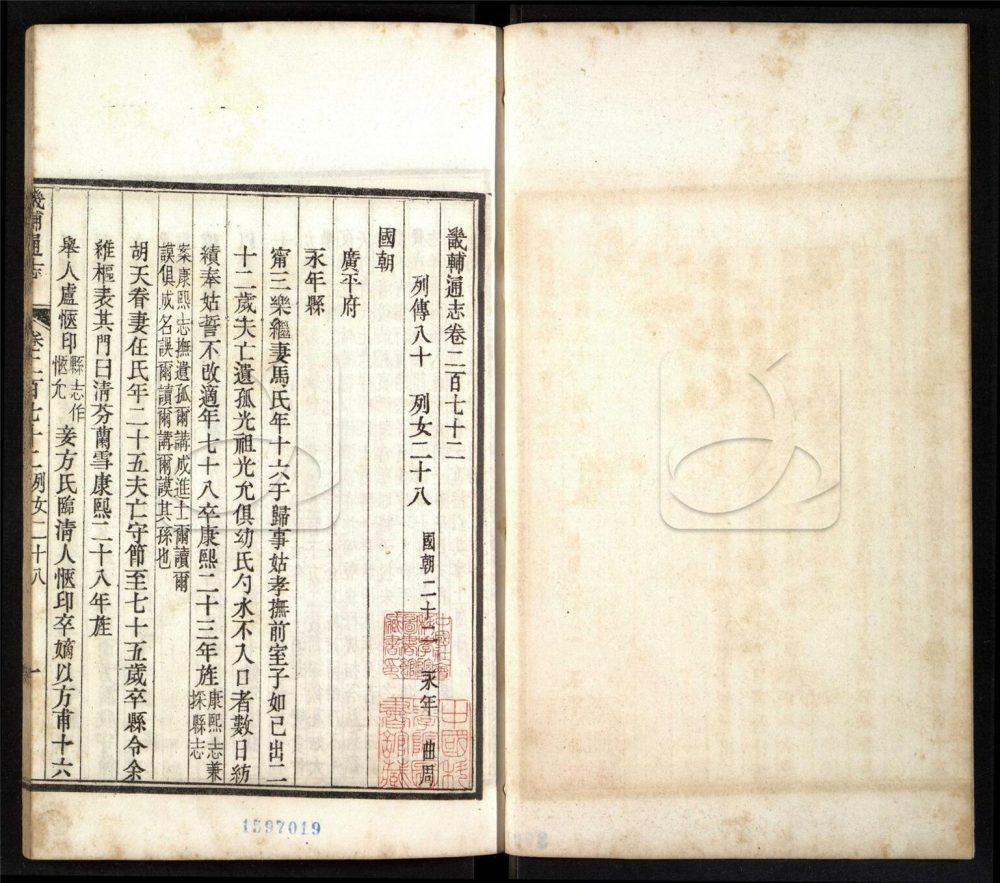 畿輔通志卷二百七十二
列傳八十 列女二十八 國朝二十二 永年 曲周
國朝
廣平府
永年縣
甯三樂繼妻馬氏年十六于歸事姑孝撫前室子如已出二
十二歲夫亡遺孤光祖光允俱幼氏勺水不入口者數日紡
績奉姑誓不改適年七十八卒康熙二十三年旌康熙志兼
採縣志
案康熙志撫遺孤爾講成進士爾讀爾
謨俱成名誤爾讀爾講爾謨其孫也
胡天眷妻任氏年二十五夫亡守節至七十五歲卒縣令余
維樞表其門曰清芬蘭雪康熙二十八年旌
舉人盧愜印縣志作
愜允妾方氏臨清人愜印卒嫡以方甫十六
畿輔通志 卷二百七十二 列女二十八 一
1597019